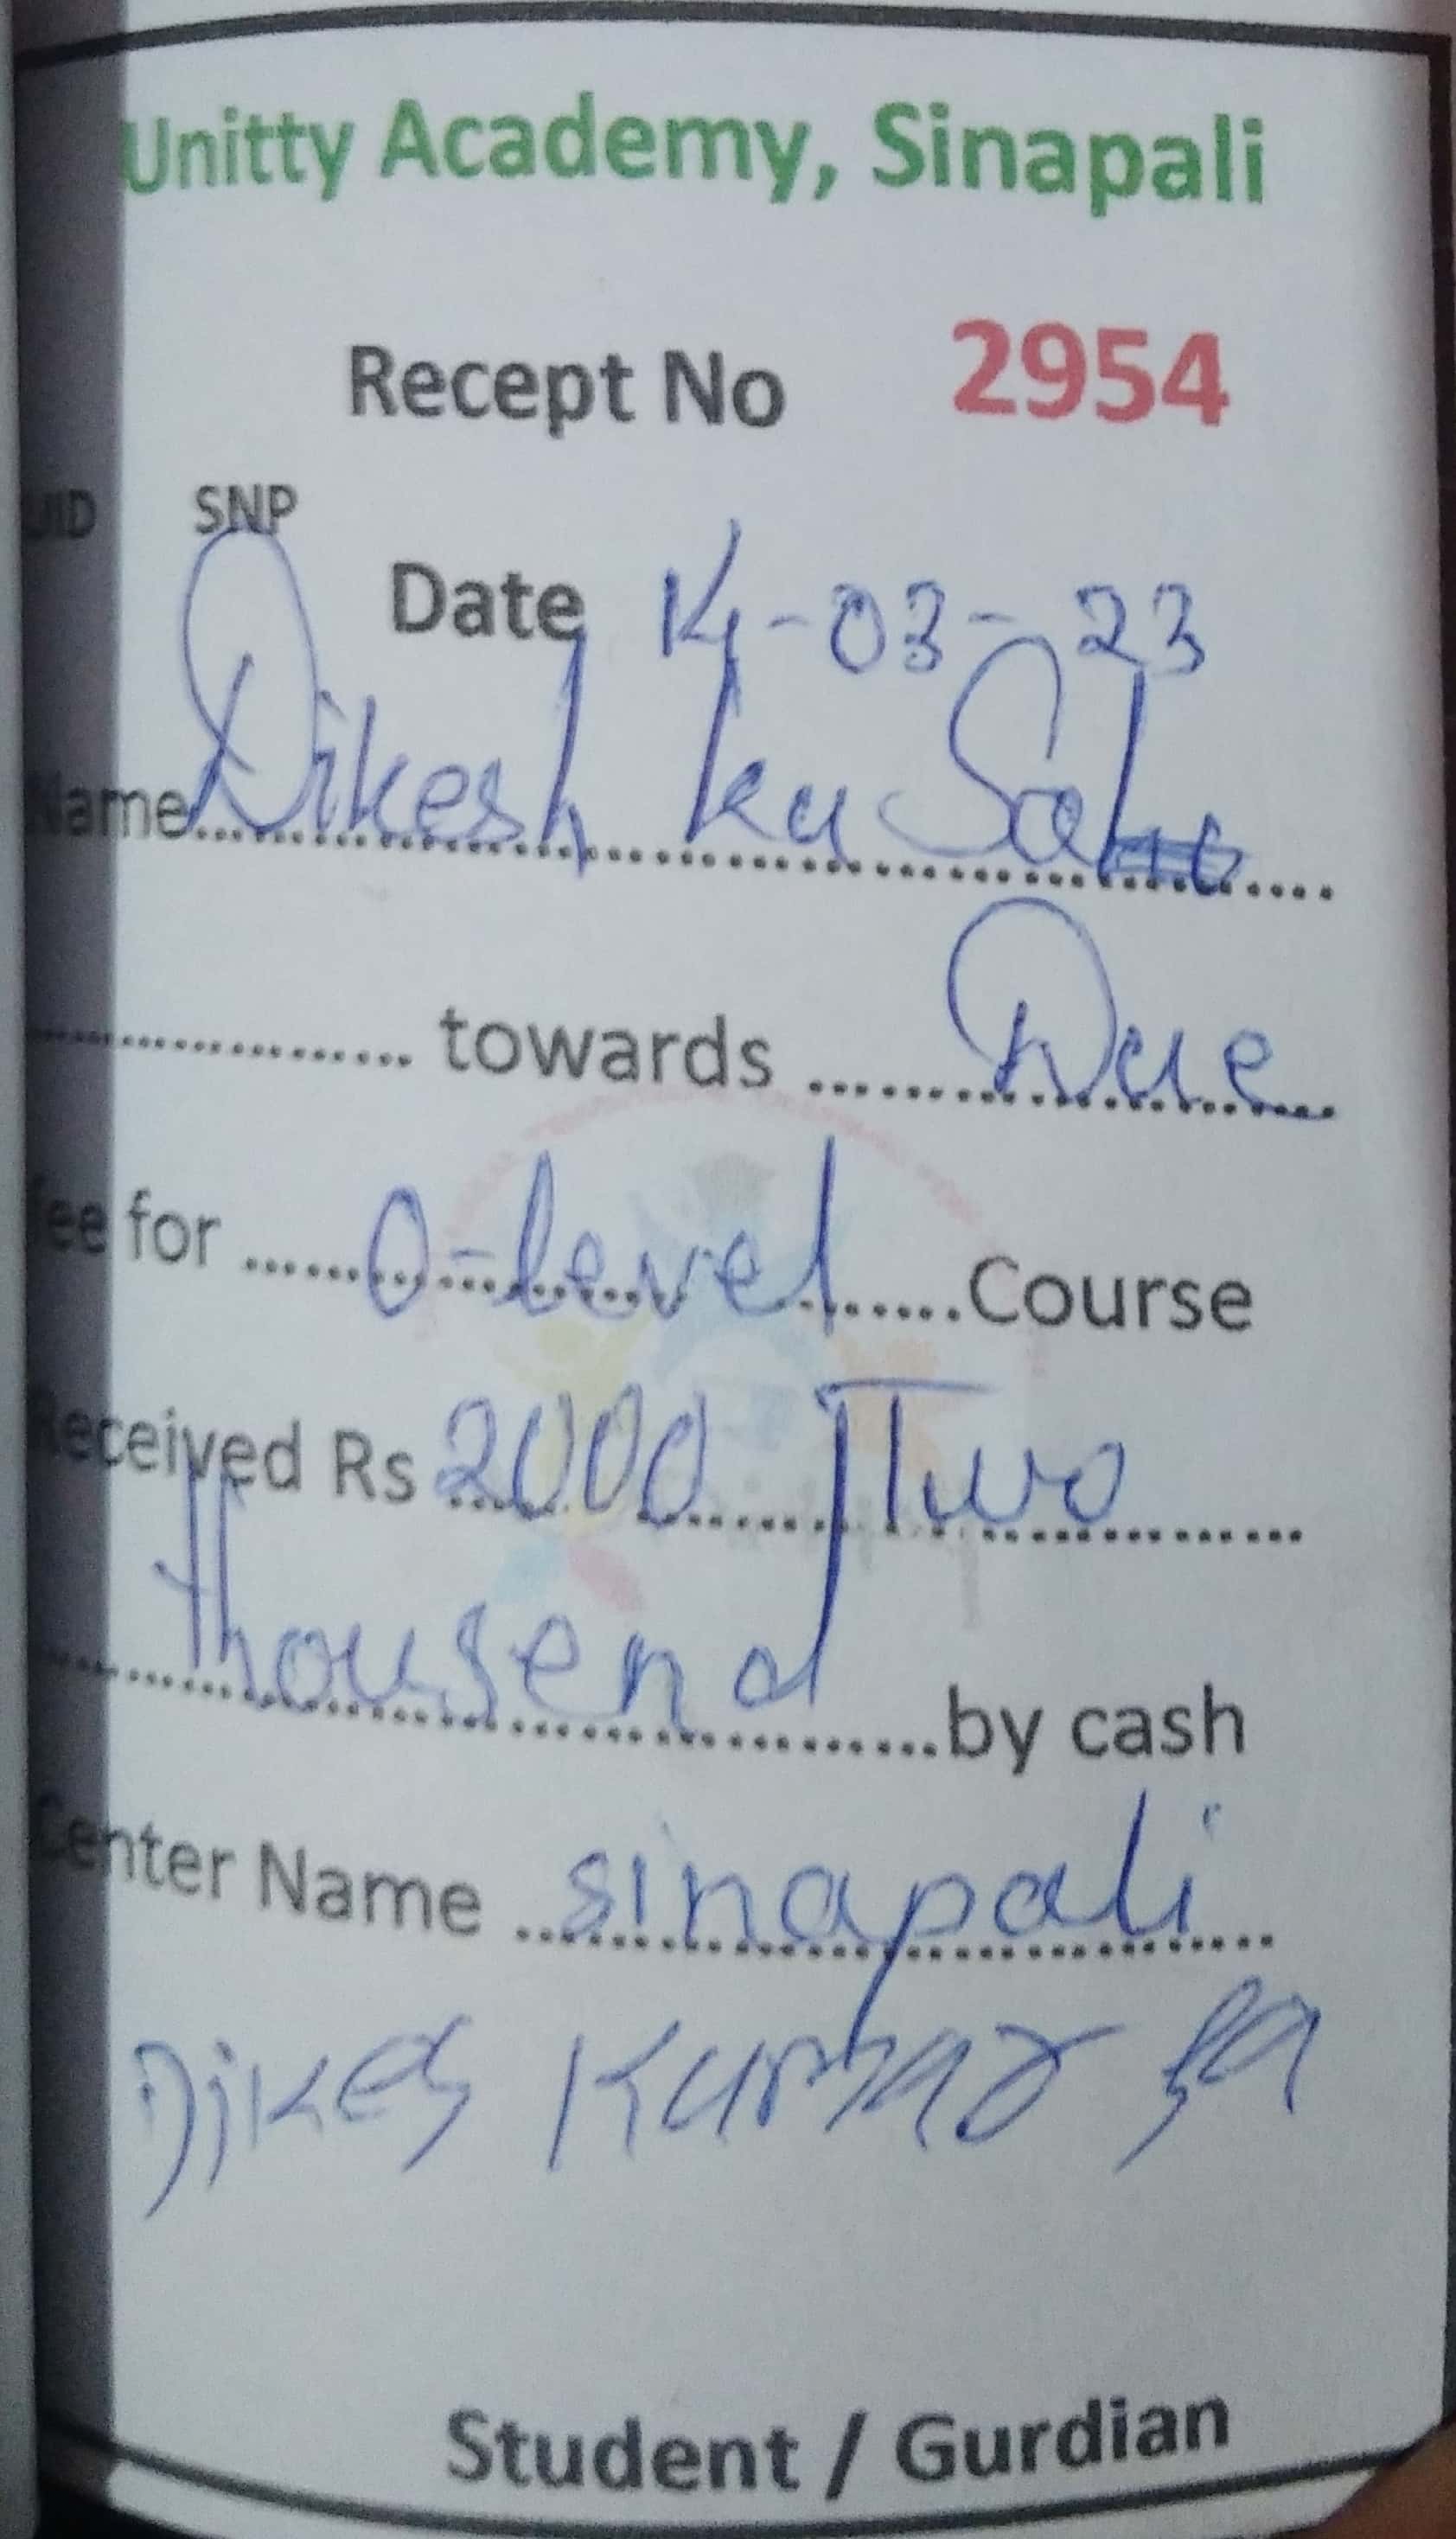 Unitty Academy, Sinapali
Recept No 2954
UID SNP
Date 14-03-23
Name Dikesh ku
towards Due
fee for 0-level Course
Received Rs 2000 Two
Thousend by cash
Center Name sinapali
Dikes Kumar sa
Student / Gurdian